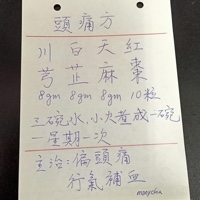 頭痛方
川 白 天 紅
芎 芷 麻 棗
8gm 8gm 8gm 10粒
三碗水,小火煮成一碗
一星期一次
主治:偏頭痛
行氣補血